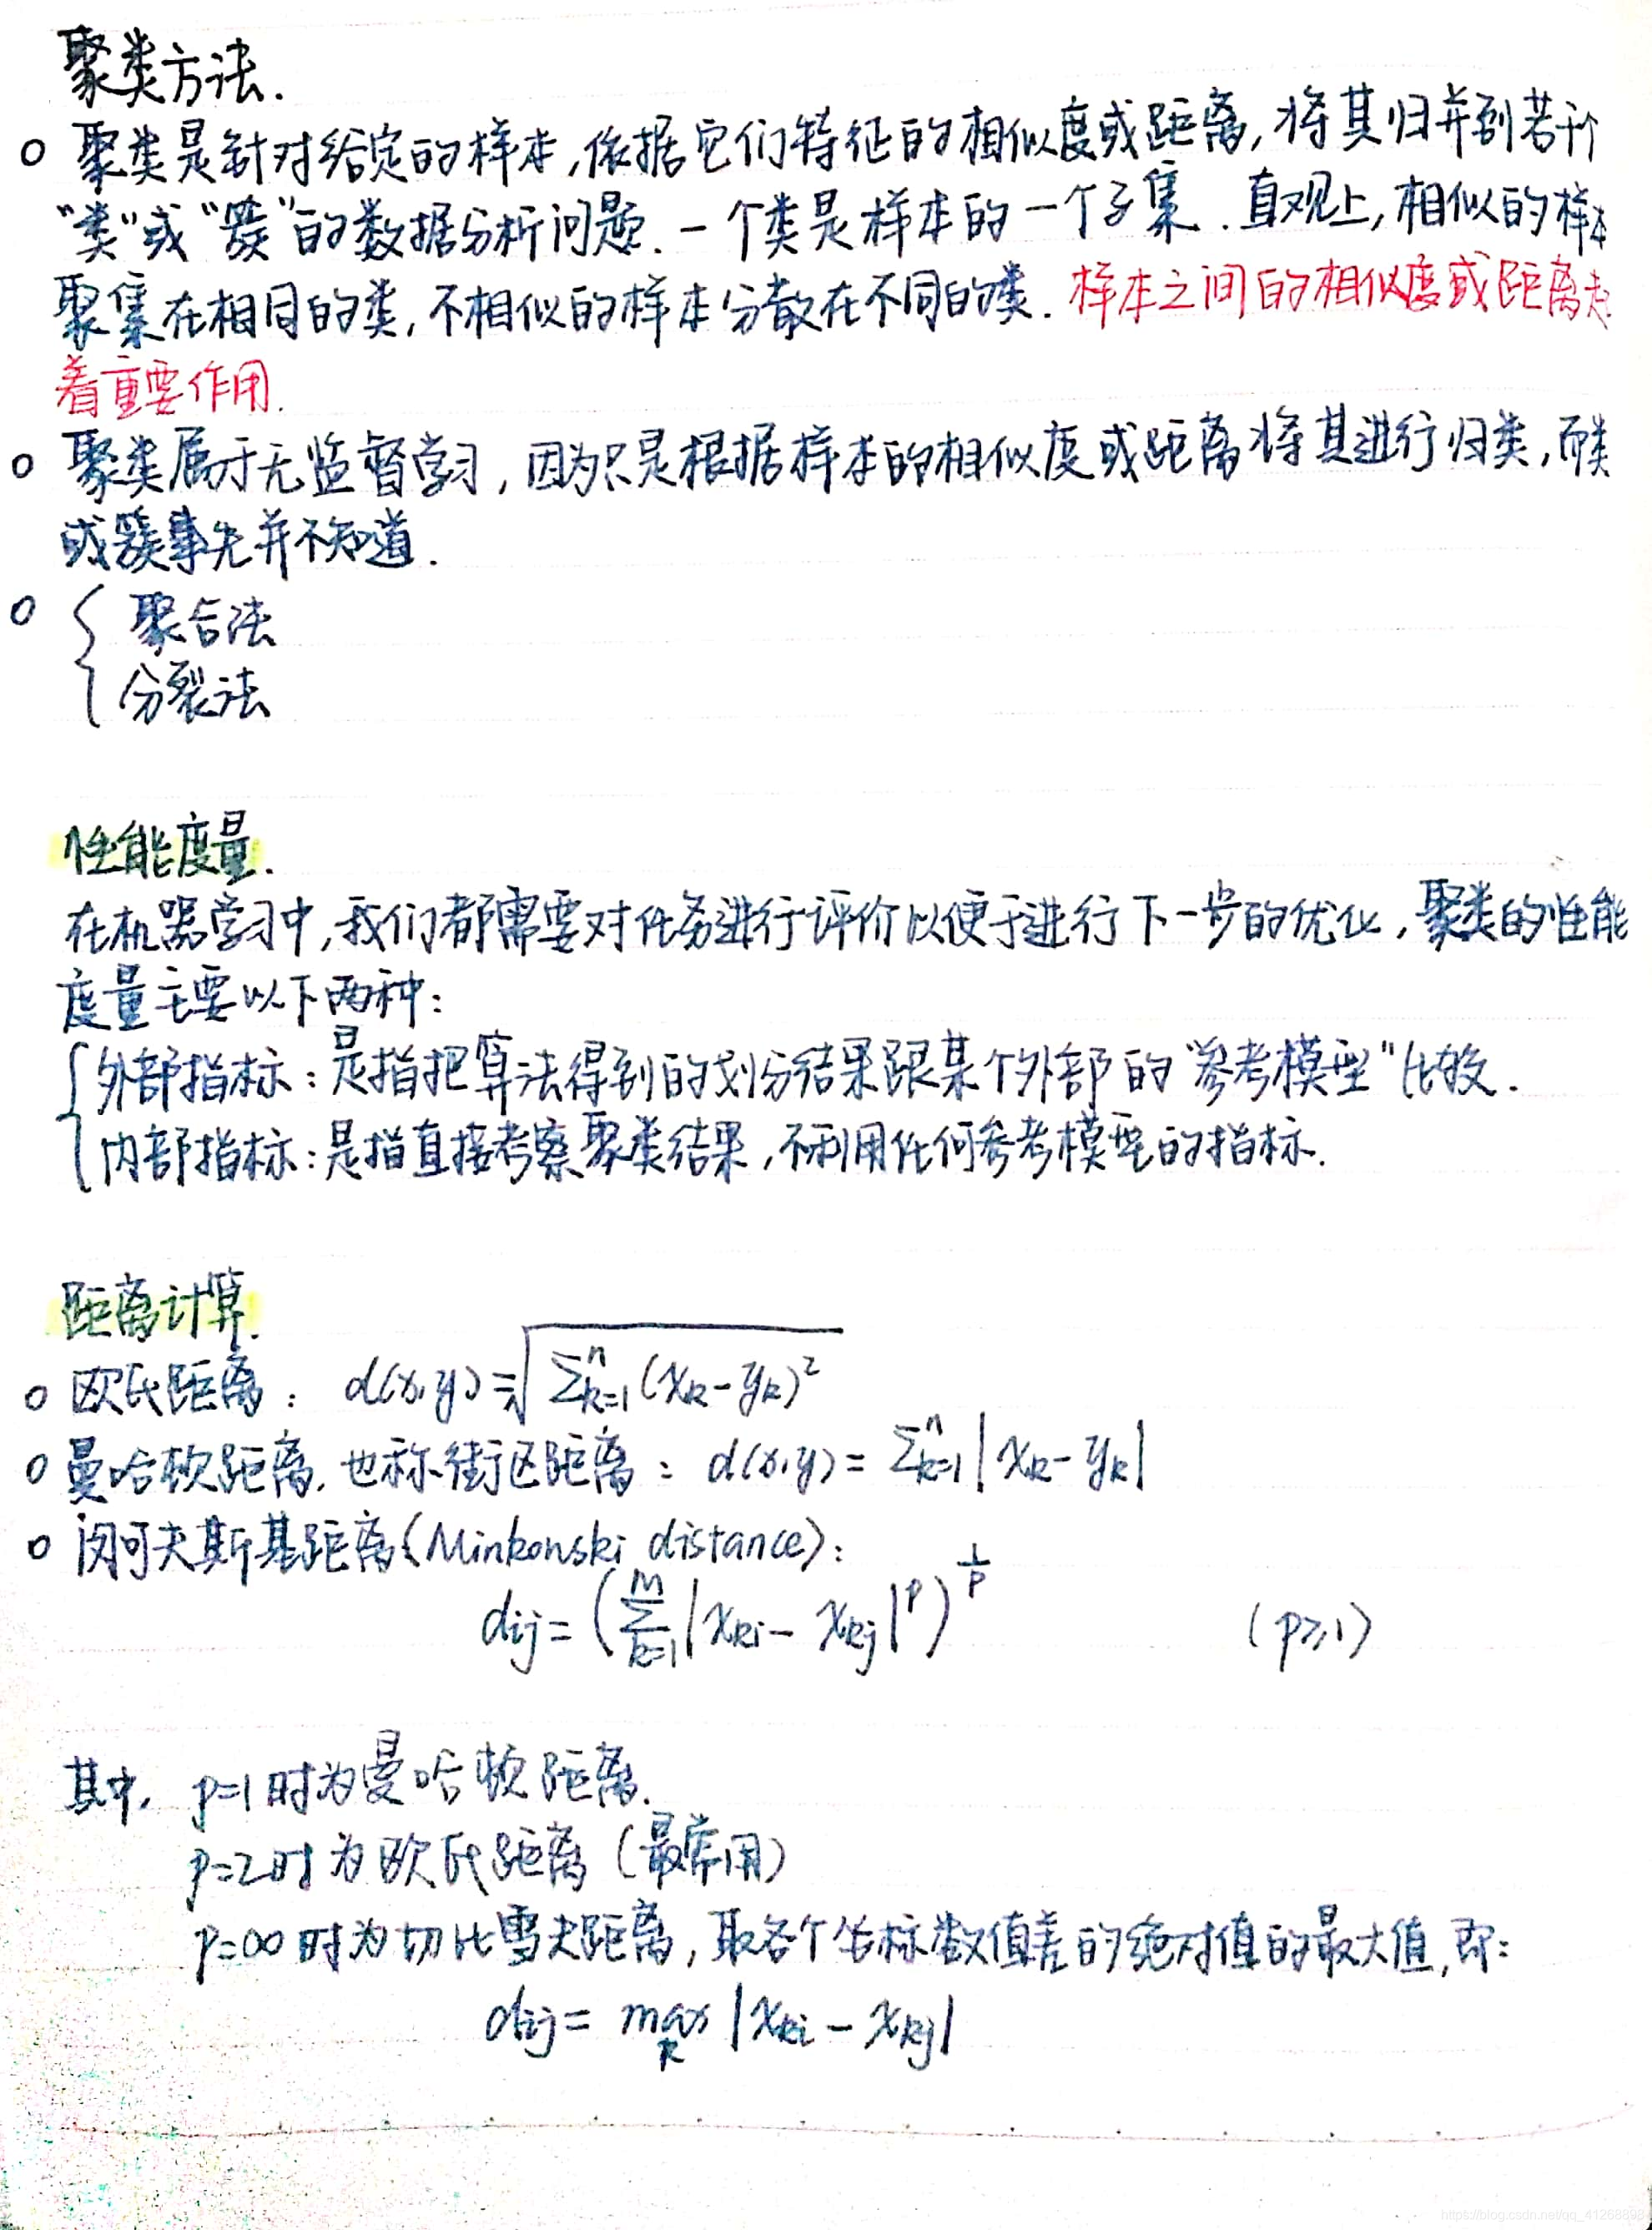 聚类方法.
○ 聚类是针对给定的样本,依据它们特征的相似度或距离,将其归并到若干个
"类"或"簇"的数据分析问题.一个类是样本的一个子集.直观上,相似的样本
聚集在相同的类,不相似的样本分散在不同的类.样本之间的相似度或距离起
着重要作用.
○ 聚类属于无监督学习,因为只是根据样本的相似度或距离将其进行归类,而类
或簇事先并不知道.
○ { 聚合法
分裂法
性能度量.
在机器学习中,我们都需要对任务进行评价以便于进行下一步的优化,聚类的性能
度量主要以下两种:
{ 外部指标:是指把算法得到的划分结果跟某个外部的"参考模型"比较.
内部指标:是指直接考察聚类结果,不利用任何参考模型的指标.
距离计算.
○ 欧氏距离: d(x,y)=√∑ⁿₖ₌₁(xₖ-yₖ)²
○ 曼哈顿距离,也称街区距离: d(x,y)=∑ⁿₖ₌₁|xₖ-yₖ|
○ 闵可夫斯基距离(Minkowski distance):
dij=(∑ᵐₖ₌₁|xki-xkj|^p)^(1/p) (p≥1)
其中, p=1时为曼哈顿距离.
p=2时为欧氏距离(最常用)
p=∞时为切比雪夫距离,取各个坐标数值差的绝对值的最大值,即:
dij= max k |xki-xkj|